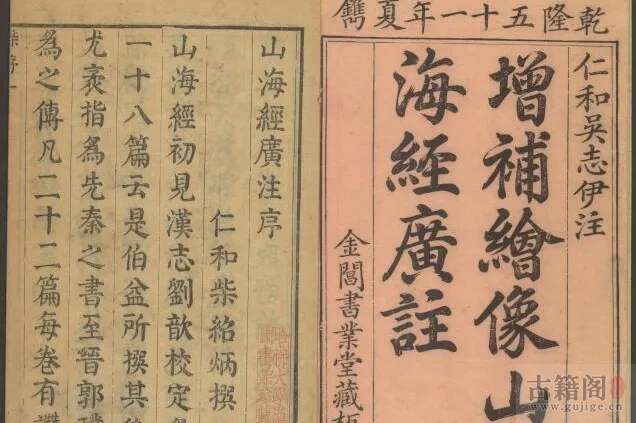 乾隆五十一年夏鐫
仁和吳志伊注
增補繪像山
海經廣註
金閶書業堂藏板
山海經廣注序
仁和柴紹炳撰
山海經初見漢志劉歆校定
一十八篇云是伯益所撰其
尤袤指爲先秦之書至晉郭
爲之傳凡二十二篇每卷有讚
柴序 一
古籍阁
www.gujige.cn